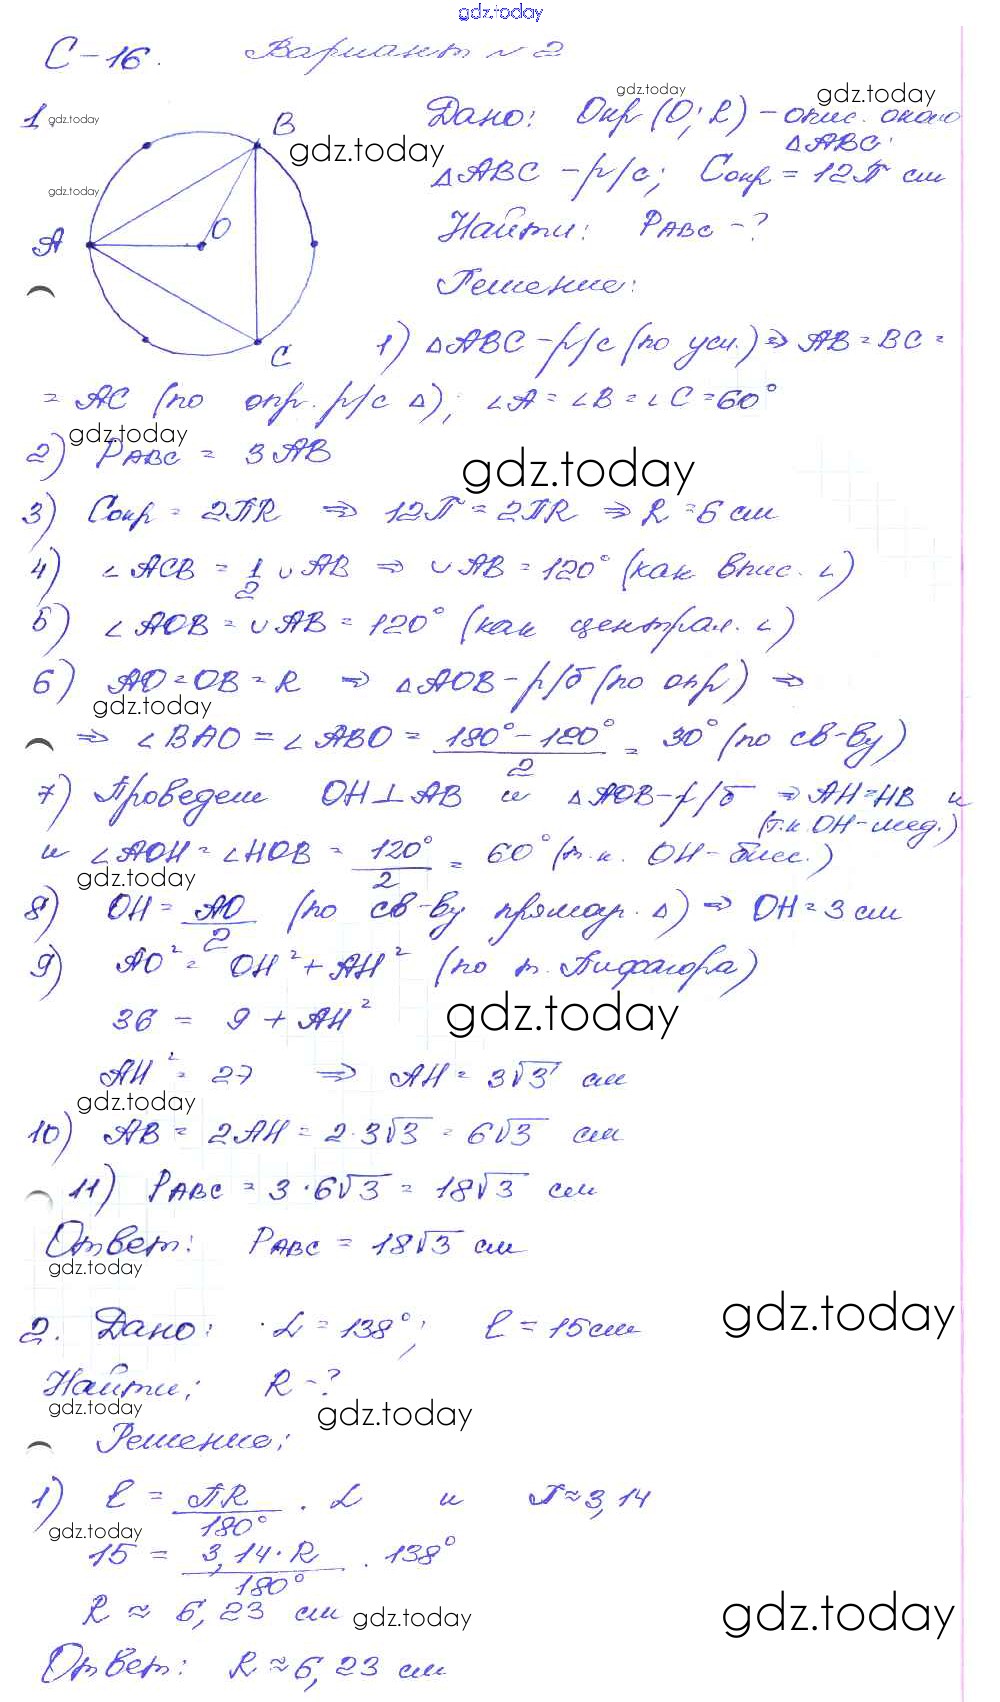 gdz.today
С-16. Вариант №2
1 gdz.today
Дано: Окр(O; R) - опис. около
gdz.today gdz.today
ΔABC.
B gdz.today
ΔABC - р/с; Cокр = 12π см
gdz.today
A O
Найти: PABC - ?
Решение:
C
1) ΔABC - р/с (по усл.) ⇒ AB = BC =
= AC (по опр. р/с Δ); ∠A = ∠B = ∠C = 60°
gdz.today
2) PABC = 3AB
gdz.today
3) Cокр = 2πR ⇒ 12π = 2πR ⇒ R = 6 см
4) ∠ACB = 1/2 ∪AB ⇒ ∪AB = 120° (как впис. ∠)
5) ∠AOB = ∪AB = 120° (как централ. ∠)
6) AO = OB = R ⇒ ΔAOB - р/б (по опр) ⇒
gdz.today
⇒ ∠BAO = ∠ABO = (180° - 120°)/2 = 30° (по св-ву)
7) Проведем OH⊥AB и ΔAOB - р/б ⇒ AH = HB и
(т.к. OH - мед.)
и ∠AOH = ∠HOB = 120°/2 = 60° (т.к. OH - бисс.)
gdz.today
8) OH = AO/2 (по св-ву прямоуг. Δ) ⇒ OH = 3 см
9) AO² = OH² + AH² (по т. Пифагора)
36 = 9 + AH²
gdz.today
AH² = 27 ⇒ AH = 3√3 см
gdz.today
10) AB = 2AH = 2·3√3 = 6√3 см
11) PABC = 3·6√3 = 18√3 см
Ответ: PABC = 18√3 см
gdz.today
2. Дано: α = 138°; ℓ = 15см
gdz.today
Найти: R - ?
gdz.today
gdz.today
Решение:
1) ℓ = πR/180° · α и π ≈ 3,14
gdz.today
15 = 3,14·R/180° · 138°
R ≈ 6,23 см
gdz.today
gdz.today
Ответ: R ≈ 6,23 см